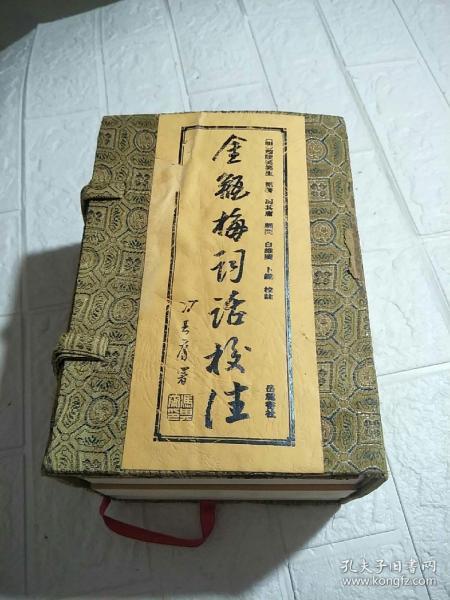 [明]兰陵笑笑生 原著 冯其庸 顾问 白维国 卜键 校註
金瓶梅词话校注
冯其庸署
岳麓书社
孔夫子旧书网
www.kongfz.com